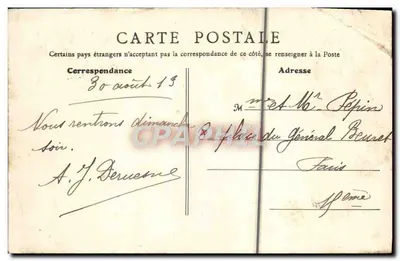 CARTE POSTALE
Certains pays étrangers n'acceptant pas la correspondance de ce côté, se renseigner à la Poste
Correspondance
Adresse
30 août 13
Nous rentrons dimanche
soir.
A. J. Deruesne
M me et Mr Pépin
2 place du Général Beuret
Paris
15eme